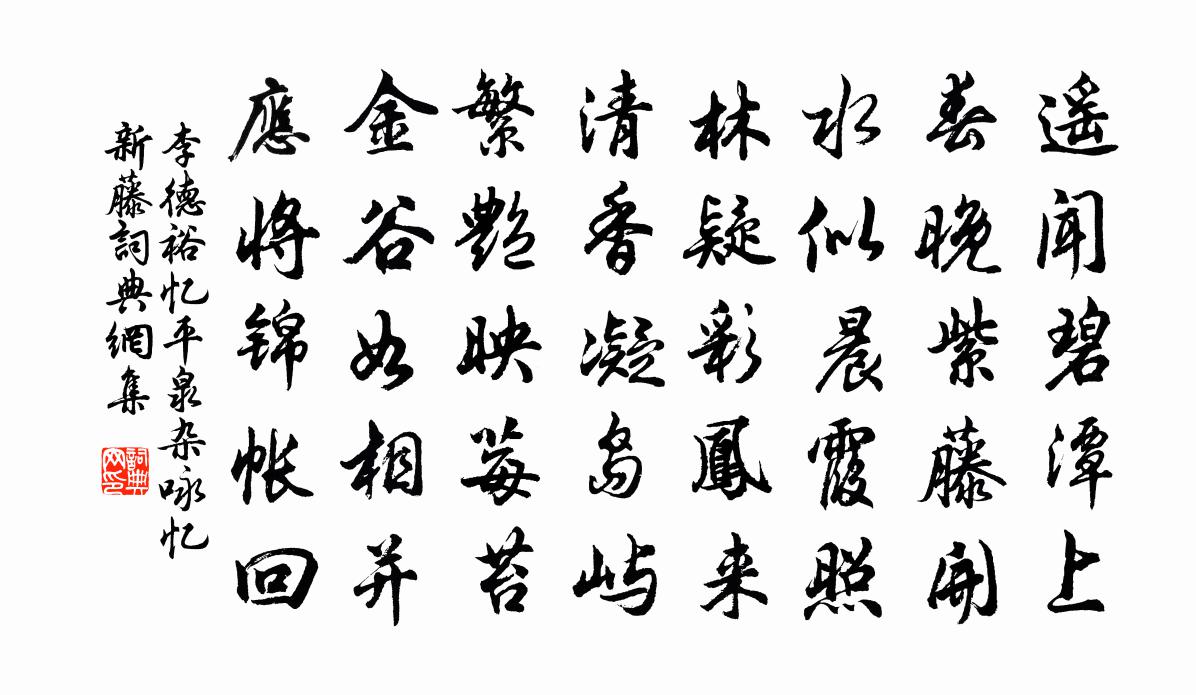 遥闻碧潭上
春晚紫藤開
水似晨霞照
林疑彩鳳来
清香凝岛屿
繁艷映莓苔
金谷如相并
應將锦帐回
李德裕忆平泉杂咏忆
新藤詞典網集
詞典
网印